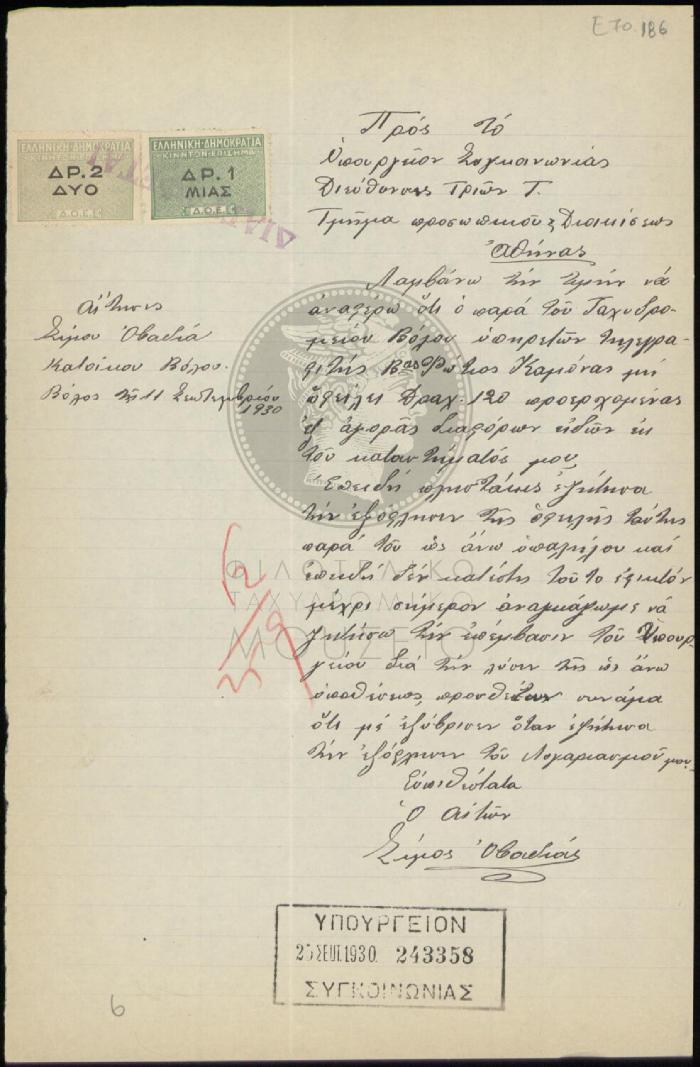 Ε70.186
ΕΛΛΗΝΙΚΗ·ΔΗΜΟΚΡΑΤΙΑ
ΚΙΝΗΤΟΝ·ΕΠΙΣΗΜΑ
ΔΡ.2
ΔΥΟ
Δ.Ο.Ε.
ΕΛΛΗΝΙΚΗ·ΔΗΜΟΚΡΑΤΙΑ
ΚΙΝΗΤΟΝ·ΕΠΙΣΗΜΑ
ΔΡ.1
ΜΙΑΣ
Δ.Ο.Ε.
Πρός τό
Ὑπουργεῖον Συγκοινωνίας
Διεύθυνσις Τ.
Τμῆμα προσωπικοῦ & Διοικήσεως
Ἀθήνας
Αἴτησις
Σίμου Ὀβαδιά
κατοίκου Βόλου.
Βόλος τῇ 11 Σεπτεμβρίου
1930
Λαμβάνω τήν τιμήν νά
ἀναφέρω ὅτι ὁ παρά τοῦ Ταχυδρο-
μείου Βόλου ὑπηρετῶν τηλεγρα-
φιτής Φώτιος Καμόνας μοί
ὀφείλει Δραχ. 120 προερχομένας
ἐξ ἀγορᾶς διαφόρων εἰδῶν ἐκ
τοῦ καταστήματός μου
Ἐπειδή πληστάκις ἐζήτησα
τήν ἐξόφλησιν τῆς ὀφειλῆς ταύτης
παρά τοῦ ὡς ἄνω ὑπαλήλου καί
ἐπειδή δέν κατέστη τοῦτο ἐφικτόν
μέχρι σήμερον ἀναγκάζωμε νά
ζητήσω τήν ἐπέμβασιν τοῦ Ὑπουρ-
γείου διά τήν λύσιν τῆς ὡς ἄνω
ὑποθέσεως, προσθέτων συνάμα
ὅτι μέ ἐξύβρισεν ὅταν ἐζήτησα
τήν ἐξόφλησιν τοῦ λογαριασμοῦ μου.
Εὐπιθέστατα
Ὁ Αἰτῶν
Σίμος Ὀβαδιάς
ΦΙΛΟΤΕΛΙΚΟ
ΤΑΧΥΔΡΟΜΙΚΟ
ΜΟΥΣΕΙΟ
ΥΠΟΥΡΓΕΙΟΝ
25 ΣΕΠΤ.1930. 243358
ΣΥΓΚΟΙΝΩΝΙΑΣ
6